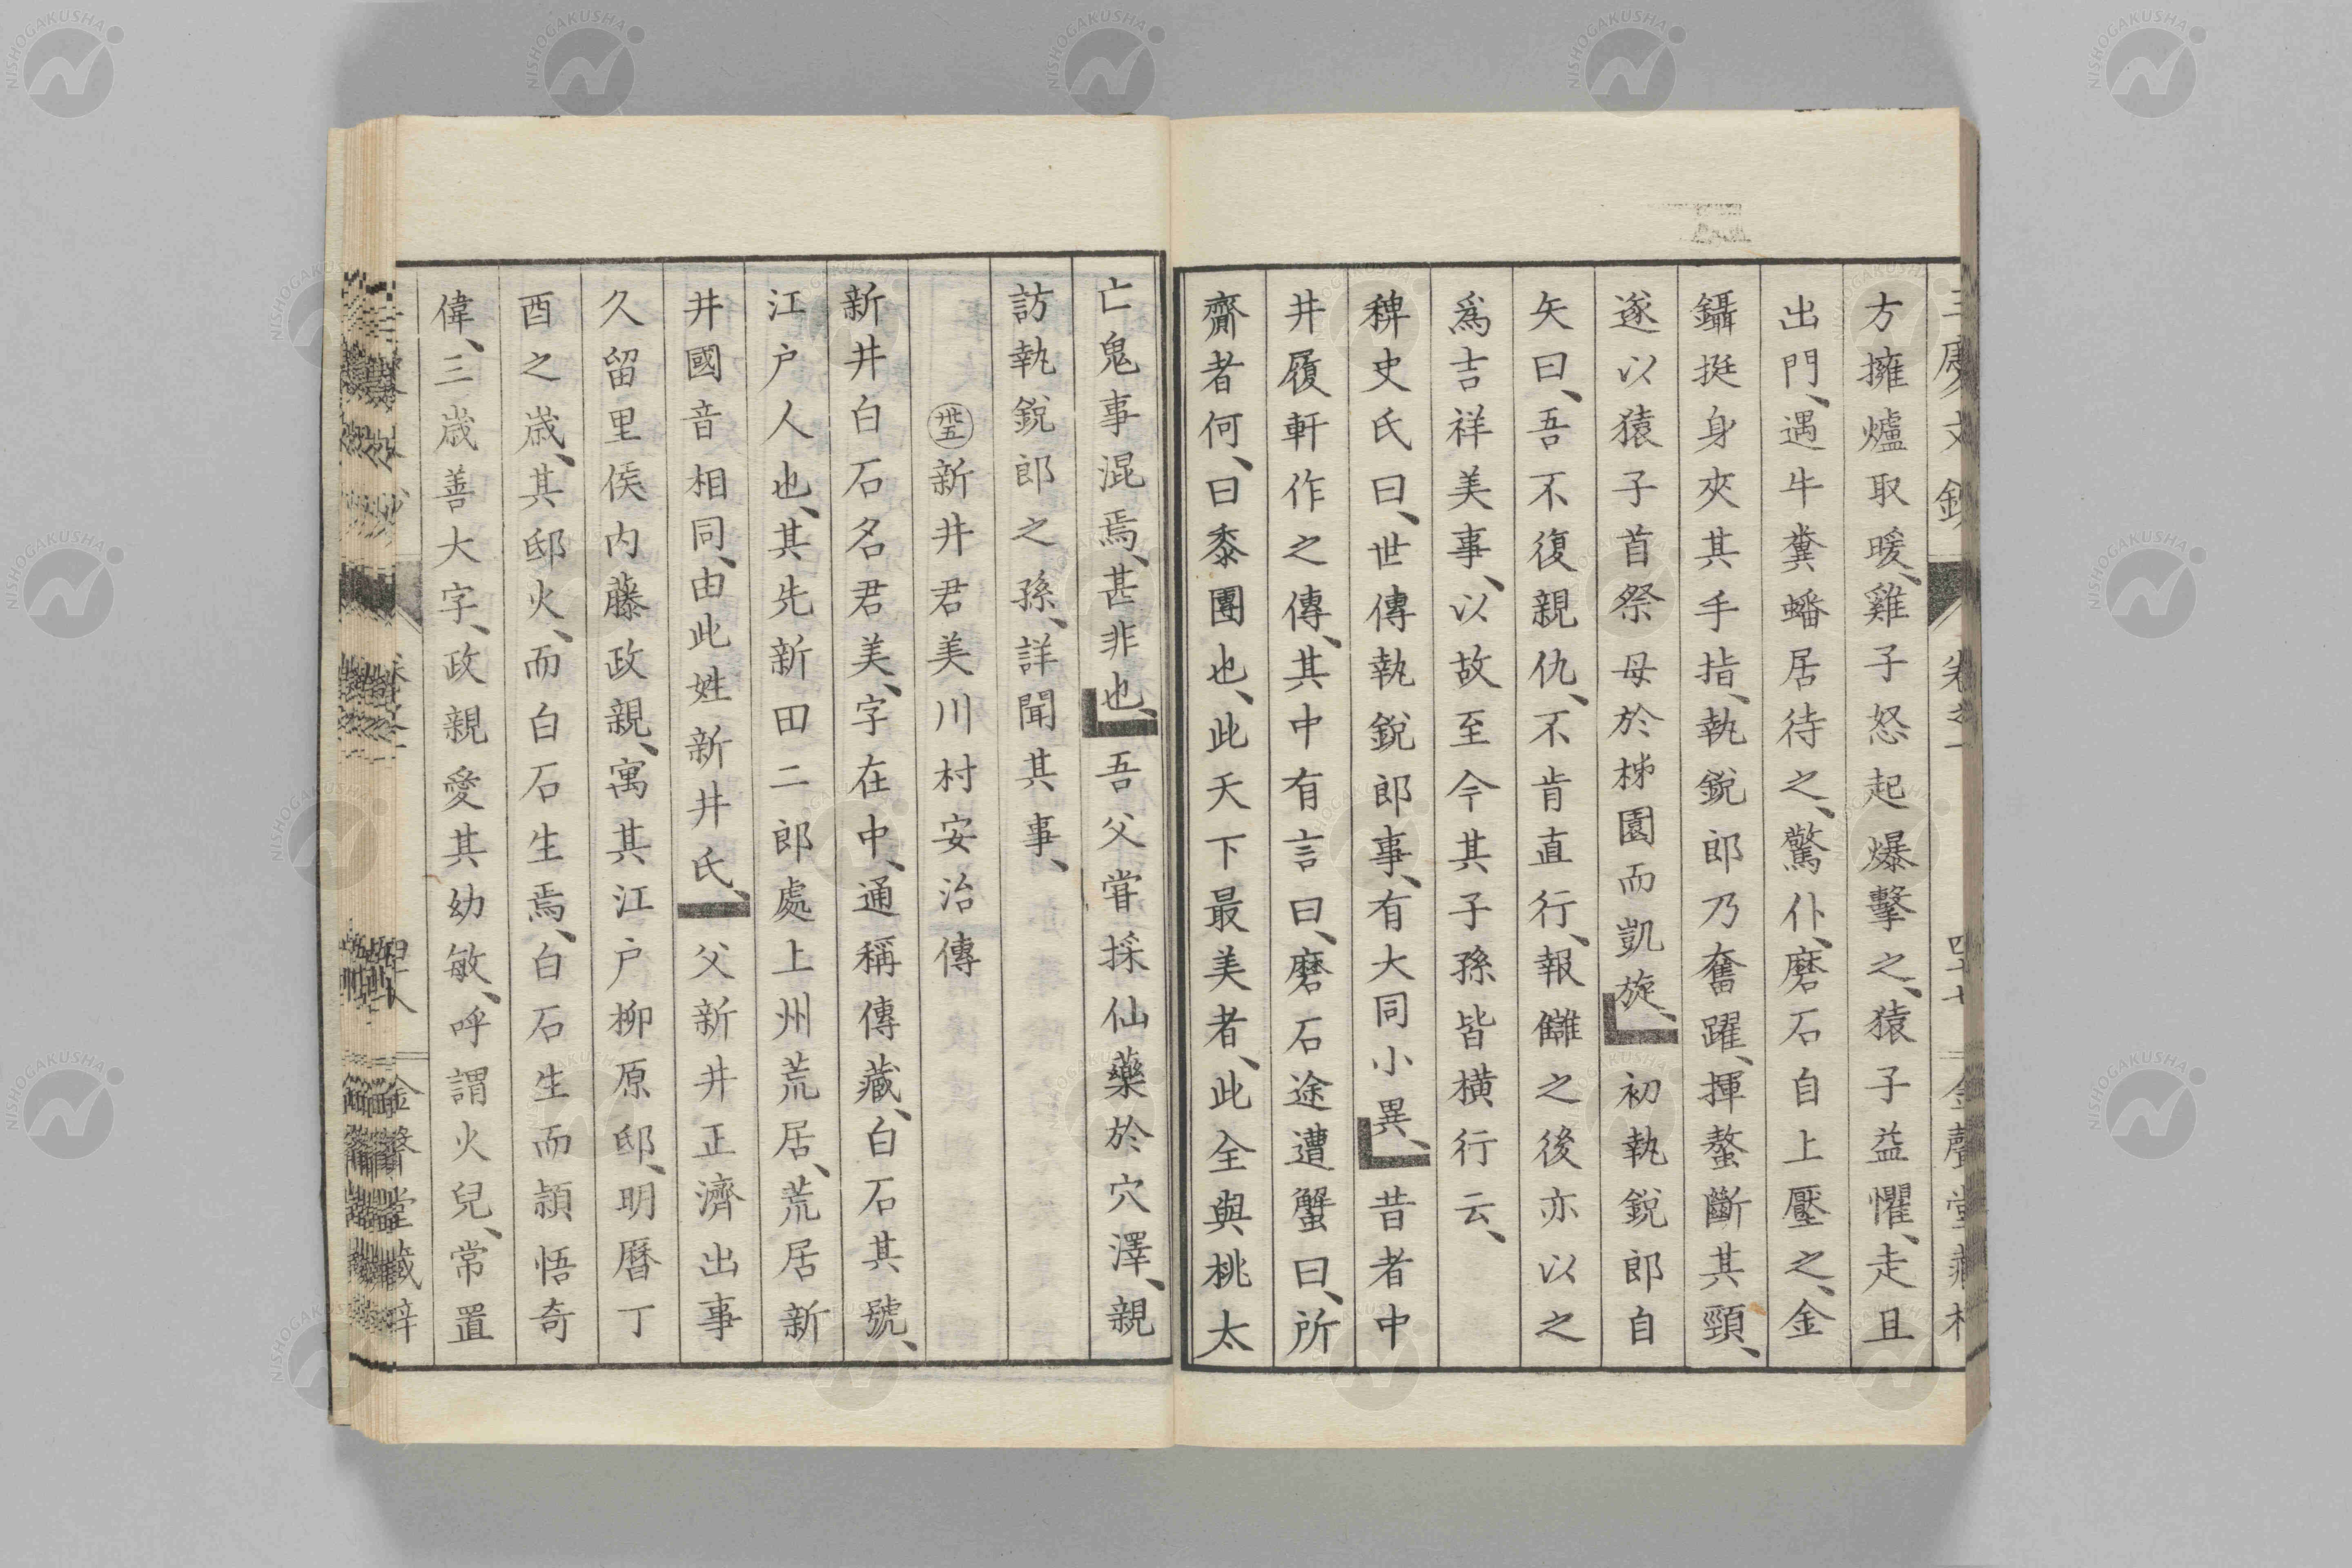 方擁爐取暖、雞子怒起爆擊之、猿子益懼、走且
出門、遇牛糞蟠居待之、驚仆、磨石自上壓之、金
鑷挺身夾其手指、執銳郎乃奮躍、揮螯斷其頸、
遂以猿子首祭母於柹園而凱旋、初執銳郎自
矢曰、吾不復親仇、不肯直行、報讎之後亦以之
爲吉祥美事、以故至今其子孫皆橫行云、
稗史氏曰、世傳執銳郎事、有大同小異、昔者中
井履軒作之傳、其中有言曰、磨石途遭蟹曰、所
齎者何、曰黍團也、此天下最美者、此全與桃太
亡鬼事混焉、甚非也、吾父甞採仙藥於穴澤、親
訪執銳郎之孫、詳聞其事、
卅五 新井君美川村安治傳
新井白石名君美、字在中、通稱傳藏、白石其號、
江戶人也、其先新田二郎處上州荒居、荒居新
井國音相同、由此姓新井氏、父新井正濟出事
久留里侯内藤政親、寓其江戶柳原邸、明曆丁
酉之歲、其邸火、而白石生焉、白石生而頴悟奇
偉、三歲善大字、政親愛其幼敏、呼謂火兒、常置
NISHOGAKUSHA